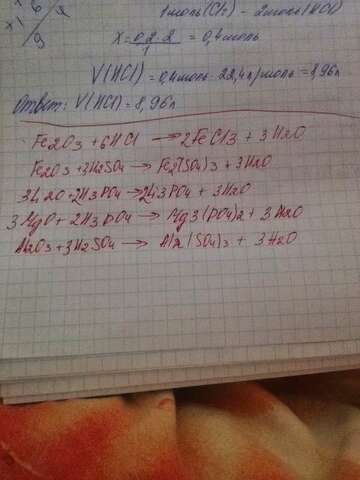 x 6 2
x 1 9
1моль(Cl2) - 2моль(HCl)
x = 0,2·2 / 1 = 0,4моль
V(HCl) = 0,4моль·22,4л/моль = 8,96л
Ответ: V(HCl) = 8,96л
Fe2O3 + 6HCl → 2FeCl3 + 3H2O
Fe2O3 + 3H2SO4 → Fe2(SO4)3 + 3H2O
3Li2O + 2H3PO4 → 2Li3PO4 + 3H2O
3MgO + 2H3PO4 → Mg3(PO4)2 + 3H2O
Al2O3 + 3H2SO4 → Al2(SO4)3 + 3H2O